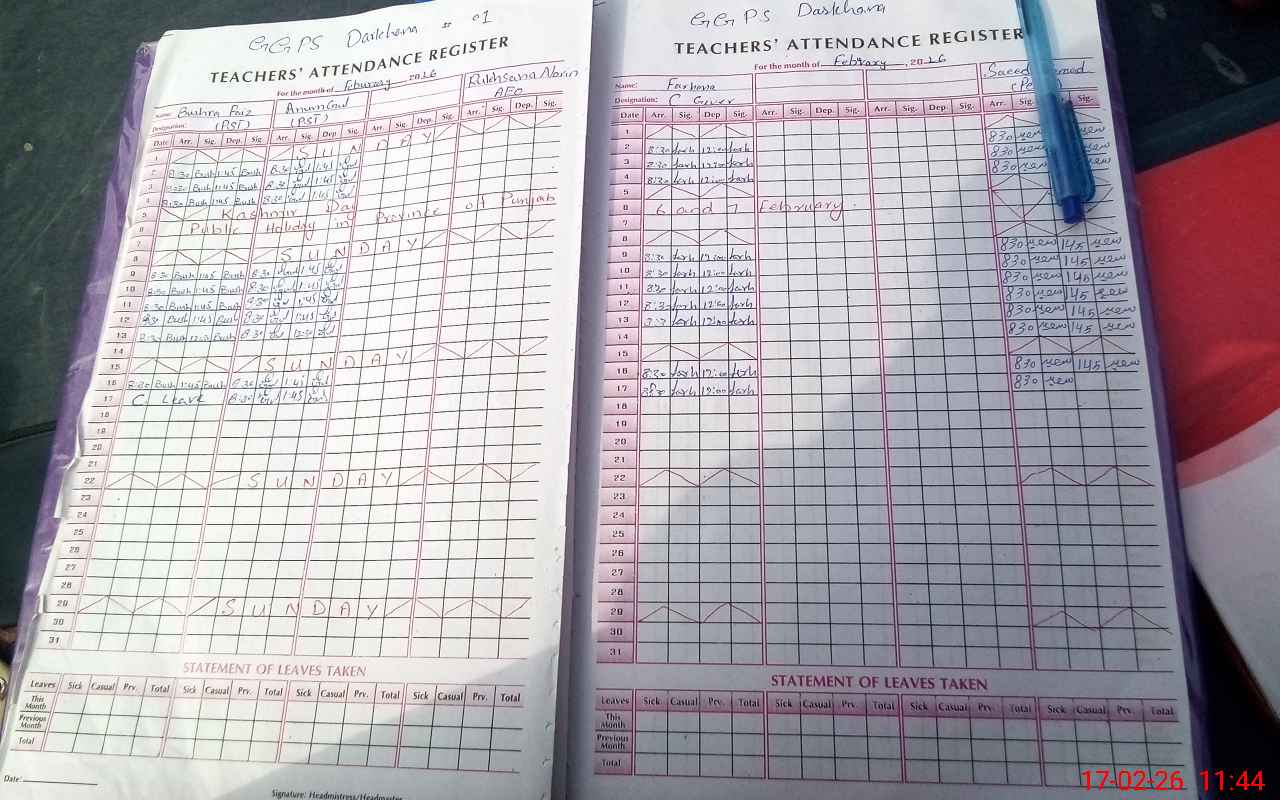 GGPS Darkhana # 01
TEACHERS' ATTENDANCE REGISTER
For the month of February 2026
Name: Bushra Faiz Anum Gul Rukhsana Norin
Designation: (PST) (PST) AEO
Date Arr. Sig. Dep. Sig. Arr. Sig. Dep. Sig. Arr. Sig. Dep. Sig. Arr. Sig. Dep. Sig.
1 SUNDAY
2 8:30 Bush 1:45 Bush 8:30 1:45
3 8:30 Bush 1:45 Bush 8:30 1:45
4 8:30 Bush 1:45 Bush 8:30 1:45
5 Kashmir Day
6 Public Holiday in Province of Punjab
7
8 SUNDAY
9 8:30 Bush 1:45 Bush 8:30 1:45
10 8:30 Bush 1:45 Bush 8:30 1:45
11 8:30 Bush 1:45 Bush 8:30 1:45
12 8:30 Bush 1:45 Bush 8:30 1:45
13 8:30 Bush Bush 8:30
14
15 SUNDAY
16 8:30 Bush 1:45 Bush 8:30 1:45
17 C. Leave 8:30 1:45
18
19
20
21
22 SUNDAY
23
24
25
26
27
28
29 SUNDAY
30
31
STATEMENT OF LEAVES TAKEN
Leaves Sick Casual Prv. Total Sick Casual Prv. Total Sick Casual Prv. Total Sick Casual Prv. Total
This Month
Previous Month
Total
Date:
Signature: Headmistress/Headmaster
GGPS Darkhana
TEACHERS' ATTENDANCE REGISTER
For the month of February, 2026
Name: Farhana Saeed
Designation: C Giver
Date Arr. Sig. Dep Sig. Arr. Sig. Dep. Sig. Arr. Sig. Dep. Sig. Arr. Sig.
1
2 8:30 farh 12:00 farh 830
3 8:30 farh 12:00 farh 830
4 8:30 farh 12:00 farh 830
5
6 6 and 7 February.
7
8
9 8:30 farh 12:00 farh 830 145
10 8:30 farh 12:00 farh 830 145
11 8:30 farh 12:00 farh 830 145
12 8:30 farh 12:00 farh 830 145
13 8:30 farh 12:00 farh 830 145
14 830 145
15
16 8:30 farh 12:00 farh 830 145
17 8:30 farh 12:00 farh 830
18
19
20
21
22
23
24
25
26
27
28
29
30
31
STATEMENT OF LEAVES TAKEN
Leaves Sick Casual Prv. Total Sick Casual Prv. Total Sick Casual Prv. Total Sick Casual Prv. Total
This Month
Previous Month
Total
17-02-26 11:44